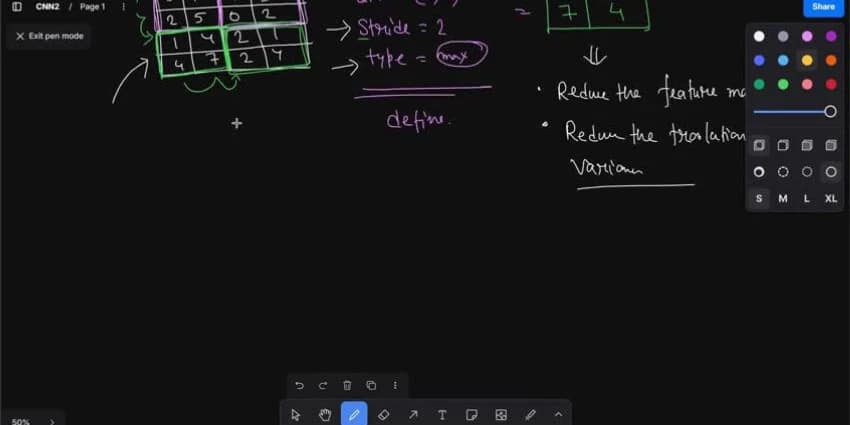 CNN2 / Page 1
Share
Exit pen mode
2 5 0 2
1 4 2 1
4 7 2 4
Stride = 2
type = max
define.
= 7 4
Reduce the feature ma
the
Varian
S M L XL
T
50%